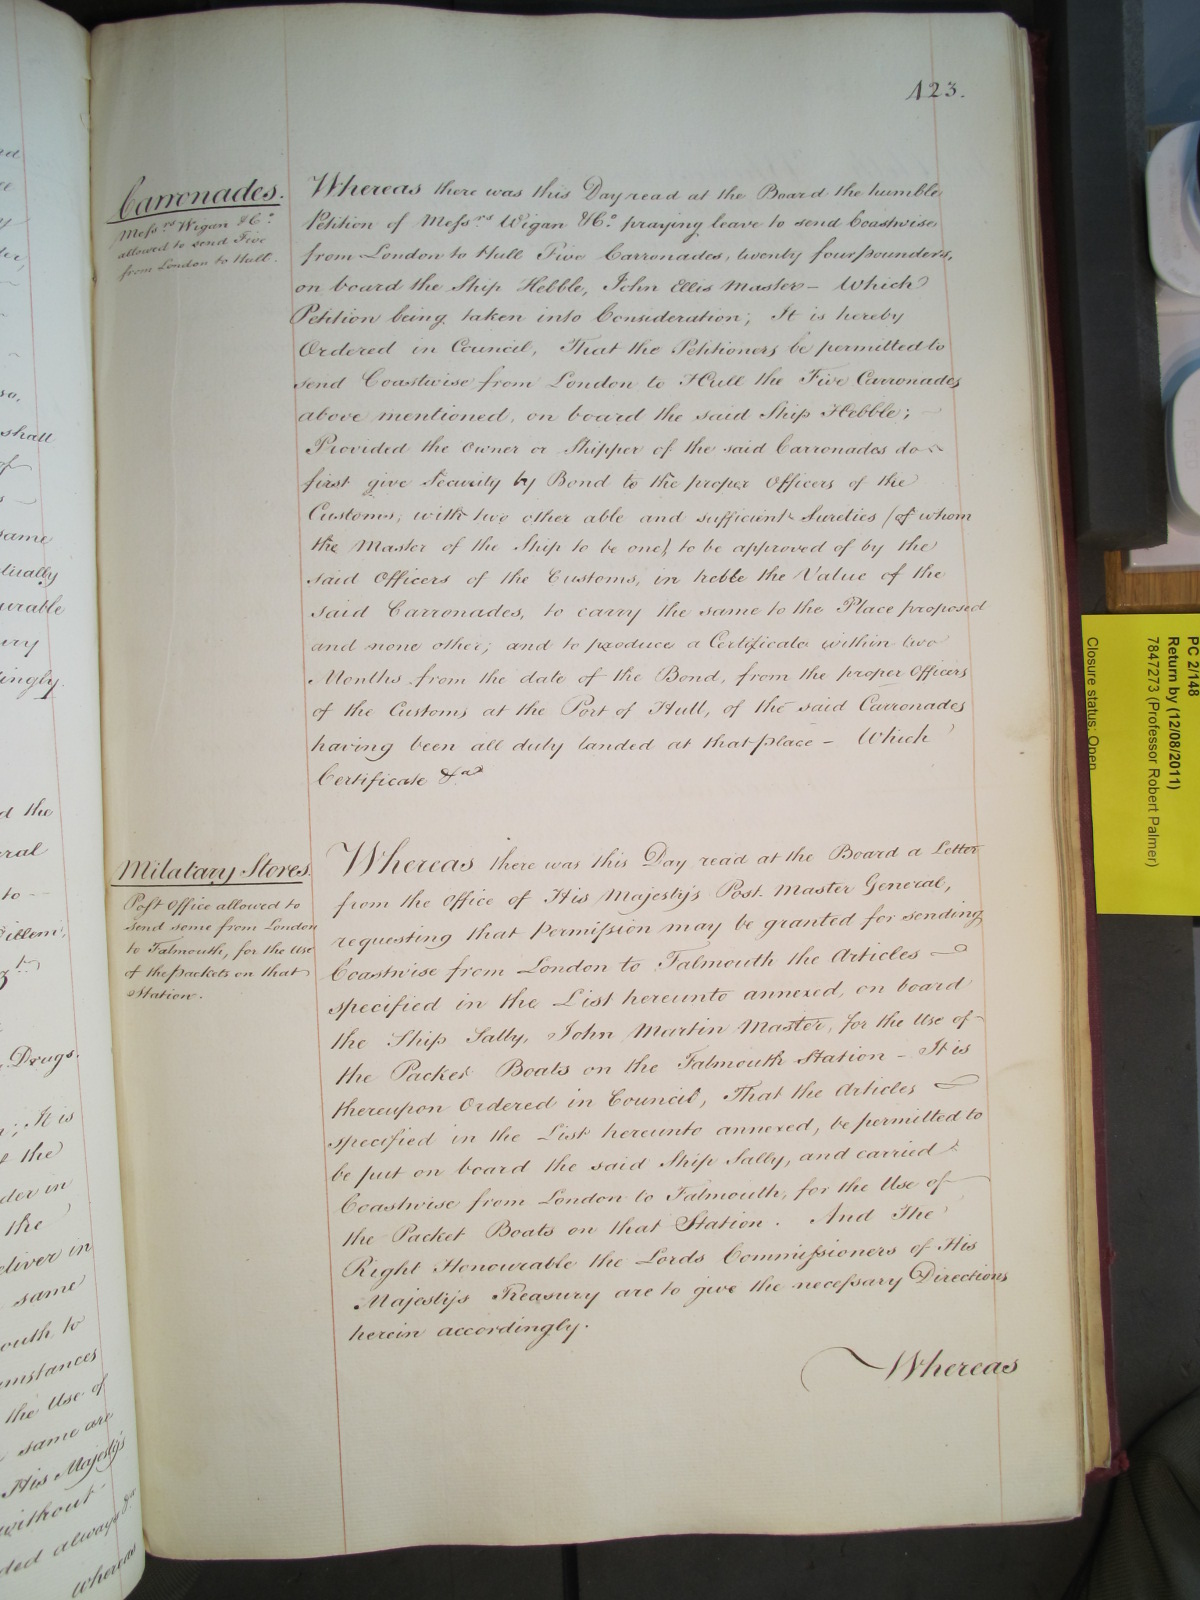 123.
Carronades.
Mess.rs Wigan & Co.
allowed to send Five
from London to Hull.
Whereas there was this Day read at the Board the humble
Petition of Mess.rs Wigan & Co. praying leave to send Coastwise
from London to Hull Five Carronades, twenty four pounders,
on board the Ship Hebble, John Ellis Master – Which
Petition being taken into Consideration; It is hereby
Ordered in Council, That the Petitioners be permitted to
send Coastwise from London to Hull the Five Carronades
above mentioned, on board the said Ship Hebble; –
Provided the Owner or Shipper of the said Carronades do
first give Security by Bond to the proper Officers of the
Customs, with two other able and sufficient Sureties (of whom
the Master of the Ship to be one) to be approved of by the
said Officers of the Customs, in treble the Value of the
said Carronades, to carry the same to the Place proposed
and none other; and to produce a Certificate within two
Months from the date of the Bond, from the proper Officers
of the Customs at the Port of Hull, of the said Carronades
having been all duly landed at that place – Which
Certificate &ca
Milatary Stores.
Post Office allowed to
send some from London
to Falmouth, for the use
of the packets on that
Station.
Whereas there was this Day read at the Board a Letter
from the Office of His Majesty's Post Master General,
requesting that Permission may be granted for sending
Coastwise from London to Falmouth the Articles
specified in the List hereunto annexed, on board
the Ship Sally, John Martin Master, for the Use of
the Packet Boats on the Falmouth Station – It is
thereupon Ordered in Council, That the Articles
specified in the List hereunto annexed, be permitted to
be put on board the said Ship Sally, and carried
Coastwise from London to Falmouth, for the Use of
the Packet Boats on that Station. And The
Right Honourable the Lords Commissioners of His
Majesty's Treasury are to give the necessary Directions
herein accordingly.
Whereas
PC 2/148
Return by (12/08/2011)
7847273 (Professor Robert Palmer)
Closure status: Open
shall
of
same
d the
to
Drugs.
It is
the
der in
the
same
outh, to
the Use of
same are
His Majesty's
without
ded always &ca
Whereas